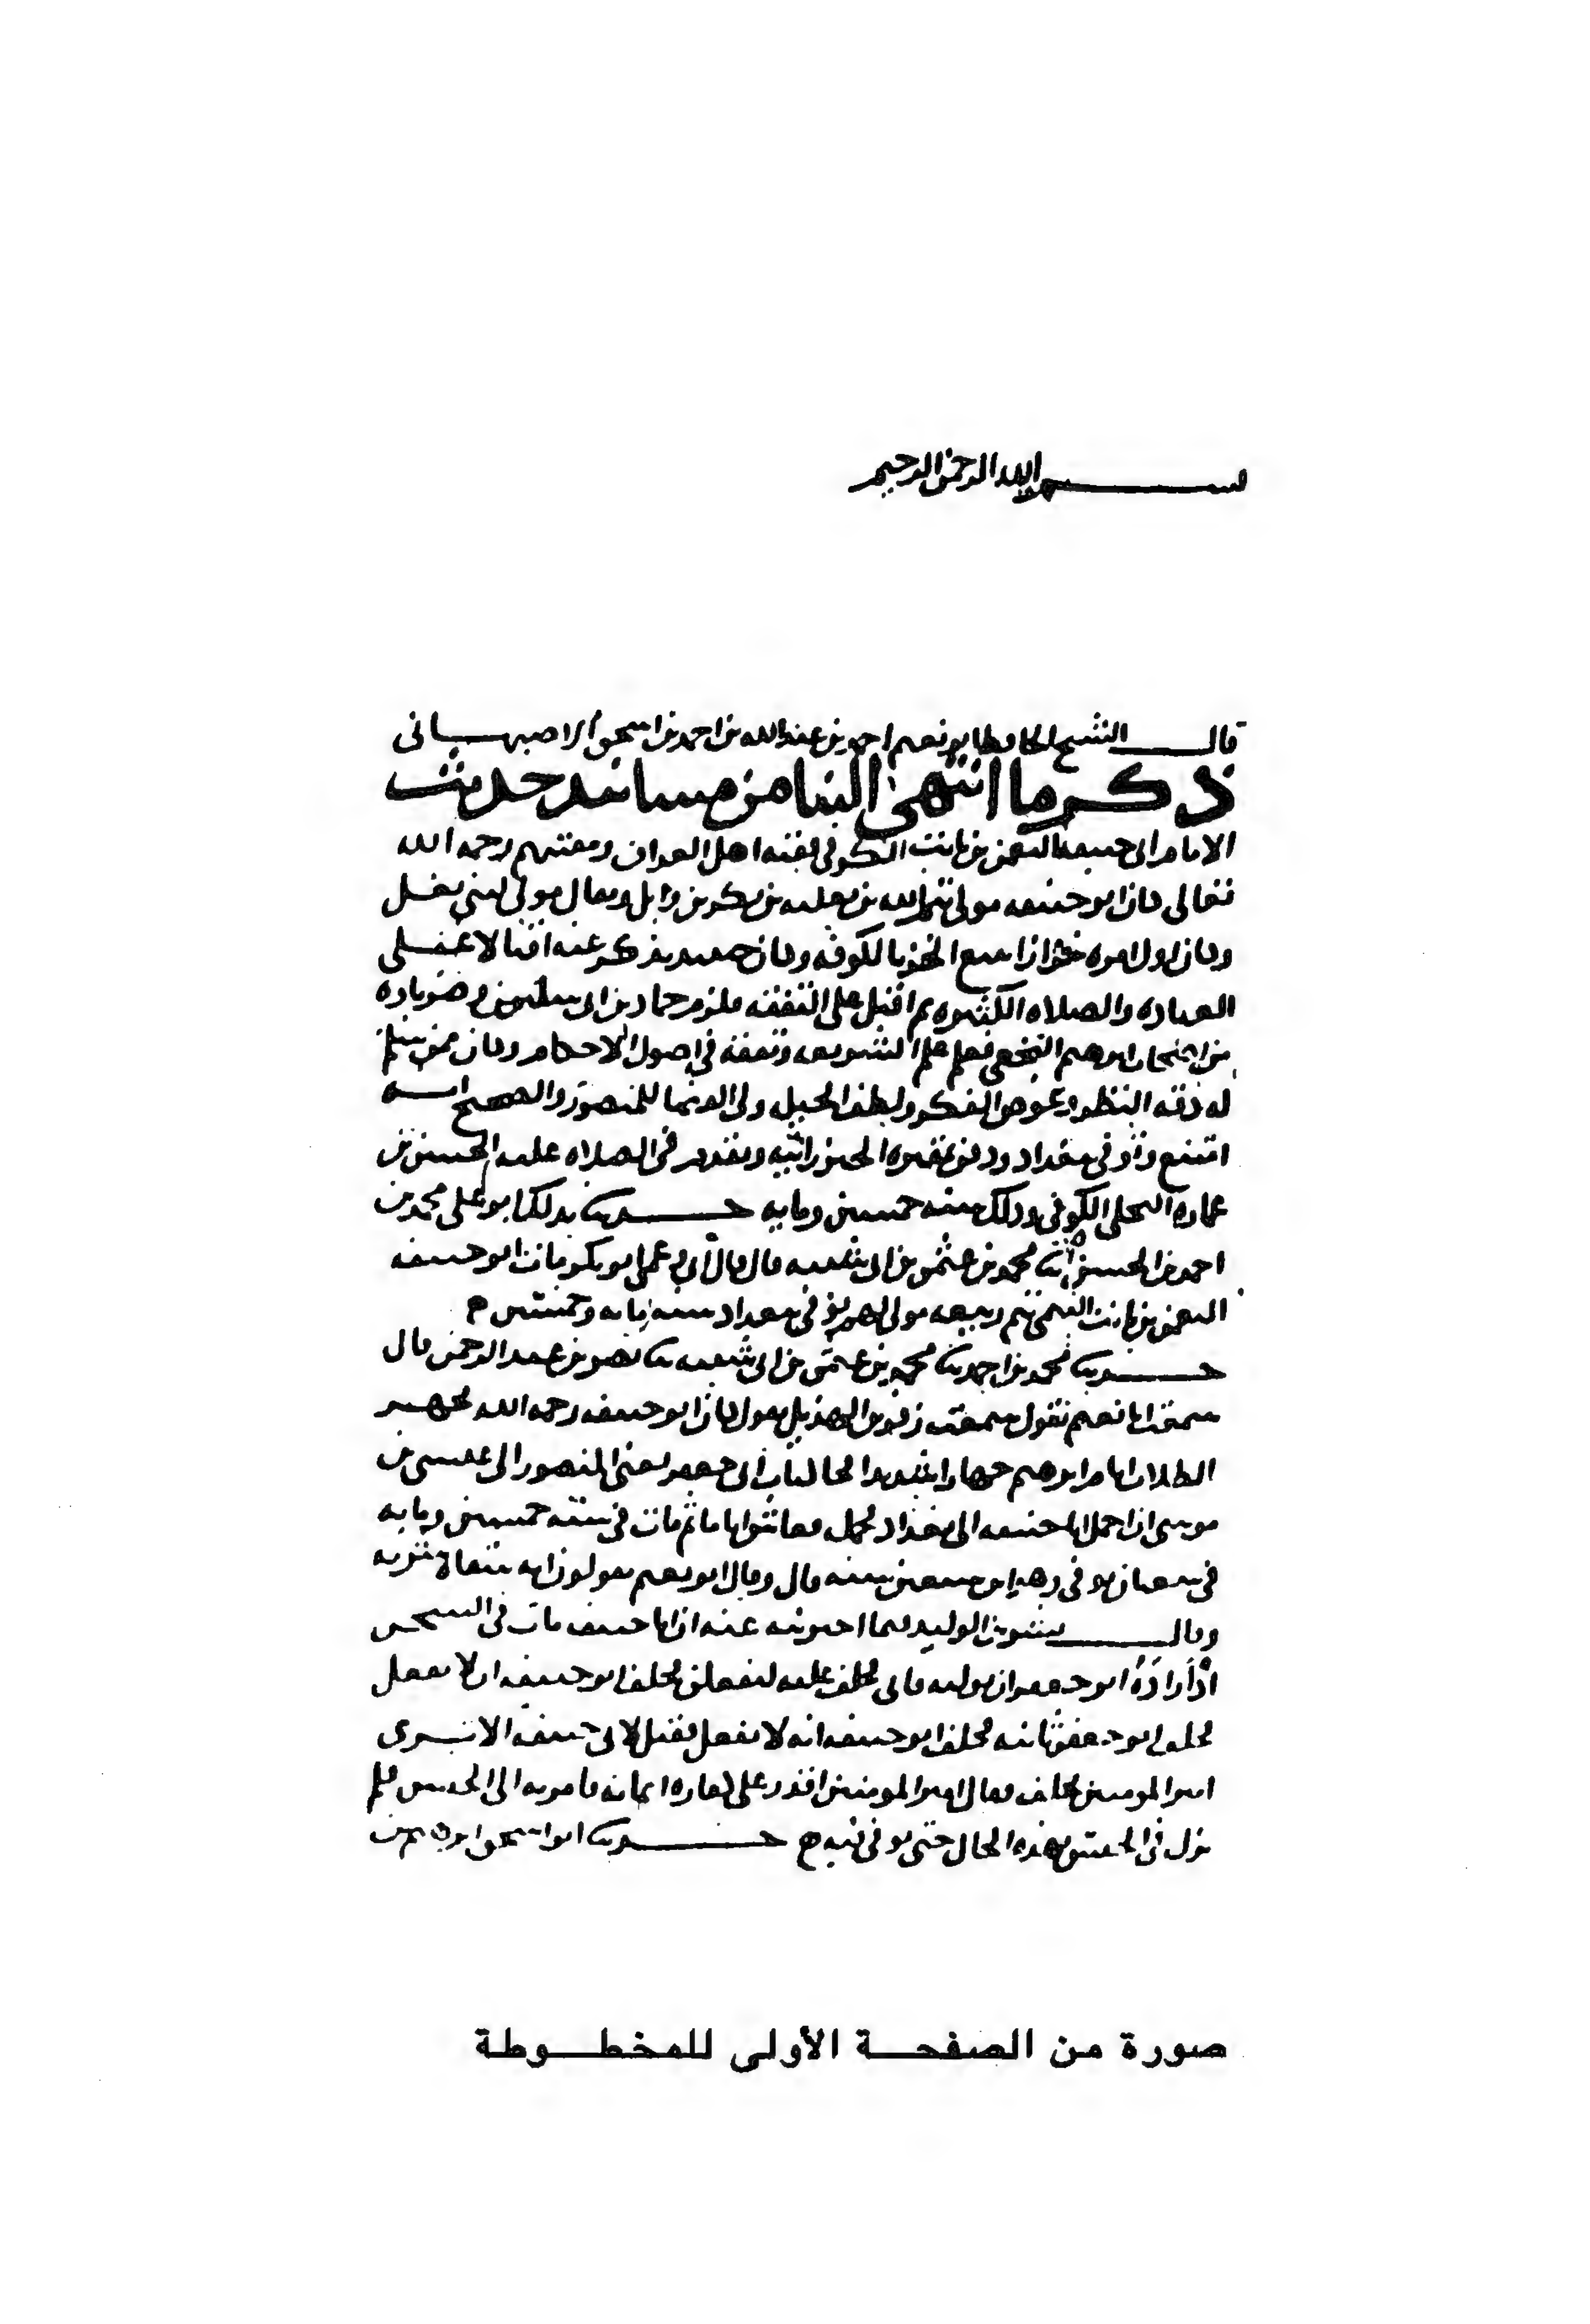 بسم الله الرحمن الرحيم
قال الشيخ الحافظ ابو نعيم احمد بن عبد الله بن احمد بن اسحق الاصبهانى
ذكر ما انتهى الينا من مسانيد حديث
الامام ابى حنيفة النعمن بن ثابت الكوفى فقيه اهل العراق ومفتيهم رحمه الله
تعالى كان ابو حنيفه مولى تيم الله بن ثعلبه بن بكر بن وايل ويقال مولى لبنى قفل
وكان اول امره خزازا يبيع الخز بالكوفه وكان حميد يذكر عنه اقبالا على
العباده والصلاه الكثيره ثم اقبل على التفقه فلزم حماد بن ابى سليمن وضرباره
من اصحاب ابرهيم النخعى فعلم علم الشريعه وتفقه فى اصول الاحكام وكان ممن سلم
له دقه النظر وغوص الفكر ولطف الحيل ولى القضا للمنصور والصحيح انه
امتنع توفى ببغداد ودفن بمقبره الخيزرانيه وتقدم فى الصلاه عليه الحسن بن
عماره البجلى الكوفى وذلك سنه خمسين ومايه حدثنا بذلك ابو على محمد بن
احمد بن الحسن ثنا محمد بن عثمن بن ابى شيبه قال قال ابى وعمى ابو بكر مات ابو حنيفه
النعمن بن ثابت التيمى تيم ربيعه مولى لهم توفى ببغداد سنه مايه وخمسين
حدثنا محمد بن احمد ثنا محمد بن عثمن بن ابى شيبه ثنا نصر بن عبد الرحمن قال
سمعت ابا نعيم يقول سمعت زفر بن الهذيل يقول كان ابو حنيفه رحمه الله يجهر
الكلام ايام ابرهيم جهارا شديدا فجا كتاب ابى جعفر يعنى المنصور الى عيسى بن
موسى ان احمل ابا حنيفه الى بغداد فحمل فعاش اياما ثم مات فى سنه خمسين ومايه
فى شعبان توفى وهو ابن سبعين سنه قال وقال ابو نعيم يقولون انه سقاه شربه
وقال بشر بن الوليد فيما اخبرت عنه ان ابا حنيفه مات فى السجن
اذ اراده ابو جعفر ان يوليه فابى فحلف عليه ليفعلن فحلف ابو حنيفه ان لا يفعل
فحلف ابو جعفر ثانيه فحلف ابو حنيفه انه لا يفعل فقيل لابى حنيفه الا ترى
امير المومنين يحلف فقال امير المومنين اقدر على كفاره ايمانه فامر به الى الحبس فلم
يزل فى الحبس بهذه الحال حتى توفى فيه حدثنا ابو اسحق ابرهيم بن
صورة من الصفحة الأولى للمخطوطة